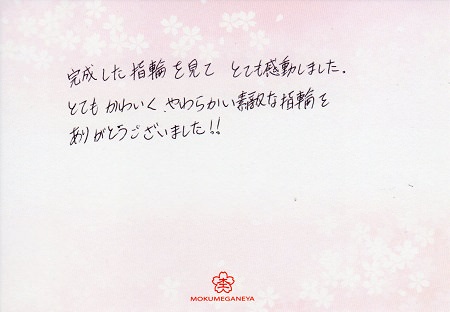 完成した指輪を見て とても感動しました.
とても かわいく やわらかい素敵な指輪を
ありがとうございました!!
杢
MOKUMEGANEYA